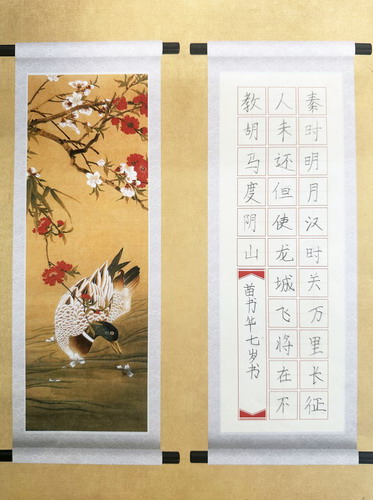 秦时明月汉时关万里长征
人未还但使龙城飞将在不
教胡马度阴山
苗书华七岁书